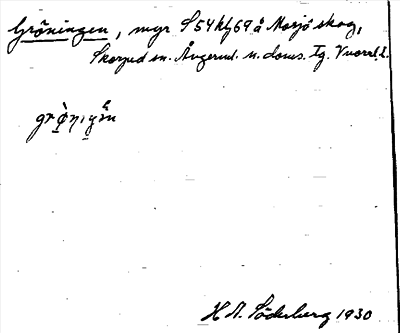 Gröningen, myr S 54 kfg 69 å Norjö skog,
Skorped sn. Ångerml. n. doms. Tg. Vnorrl. l.
H A. Söderberg 1930